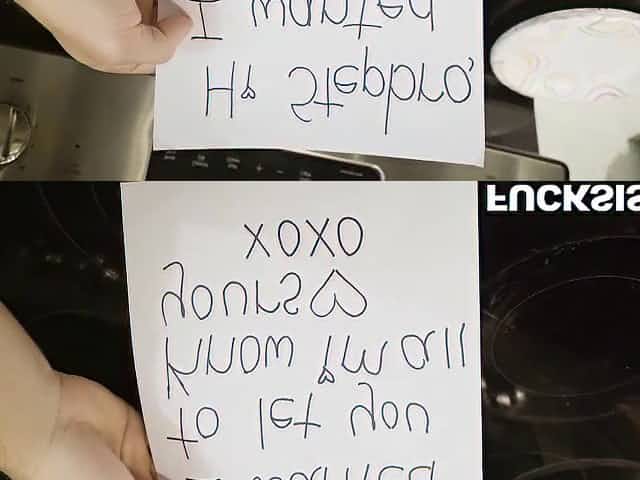 Hi Stepbro,
I wanted
to let you
know i'm all
yours♡
xoxo
FUCKSIS